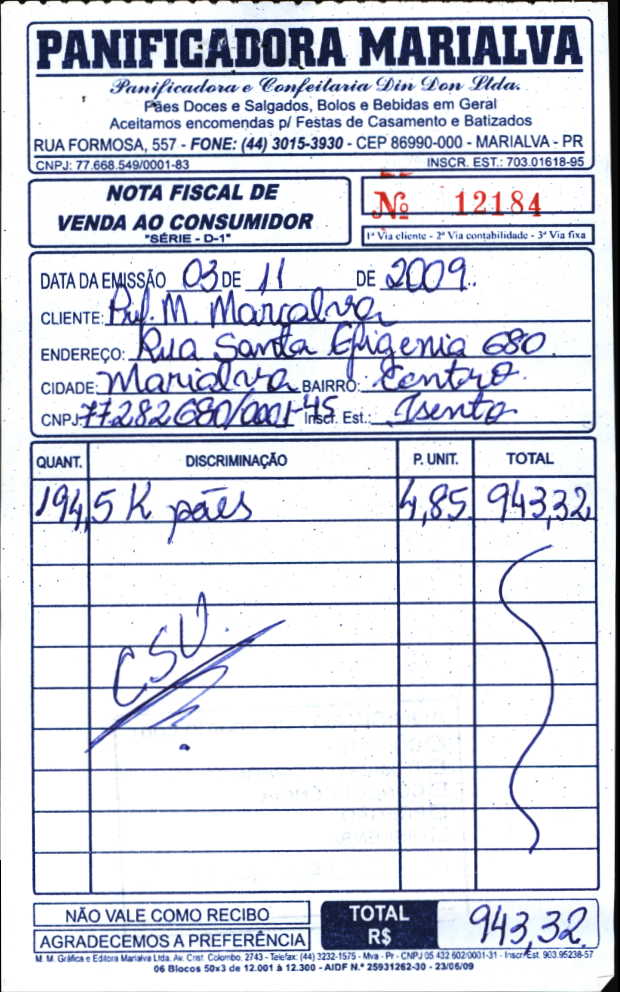 PANIFICADORA MARIALVA
Panificadora e Confeitaria Din Don Ltda.
Pães Doces e Salgados, Bolos e Bebidas em Geral
Aceitamos encomendas p/ Festas de Casamento e Batizados
RUA FORMOSA, 557 - FONE: (44) 3015-3930 - CEP 86990-000 - MARIALVA - PR
CNPJ: 77.668.549/0001-83 INSCR. EST.: 703.01618-95
NOTA FISCAL DE
VENDA AO CONSUMIDOR
"SÉRIE - D-1"
Nº 12184
1ª Via cliente - 2ª Via contabilidade - 3ª Via fixa
DATA DA EMISSÃO 03 DE 11 DE 2009.
CLIENTE: Pref. M. Marialva
ENDEREÇO: Rua Santa Efigenia 680
CIDADE: Marialva BAIRRO: Centro.
CNPJ: 77282680/0001-45 Inscr. Est.: Isento
QUANT. DISCRIMINAÇÃO P. UNIT. TOTAL
194,5 K pães 4,85 943,32
CSU.
NÃO VALE COMO RECIBO
AGRADECEMOS A PREFERÊNCIA
TOTAL R$ 943,32
M. M. Gráfica e Editora Marialva Ltda. Av. Crist. Colombo, 2743 - Telefax: (44) 3232-1575 - Mva - Pr - CNPJ 05.432.602/0001-31 - Inscr. Est. 903.95238-57
06 Blocos 50x3 de 12.001 à 12.300 - AIDF N.º 25931262-30 - 23/06/09